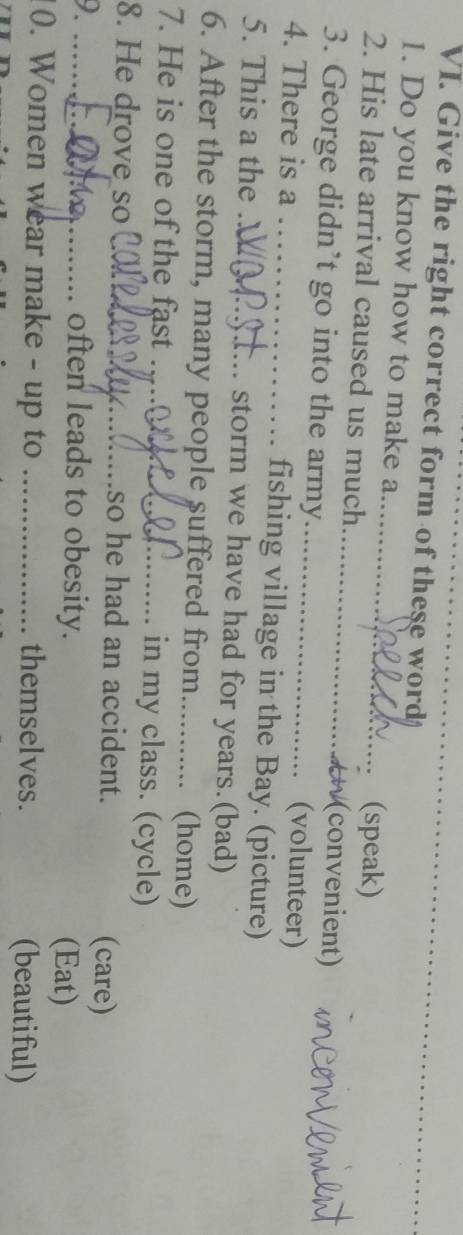 VI. Give the right correct form of these word
1. Do you know how to make a............Speech.... (speak)
2. His late arrival caused us much.............................in(convenient) inconvenient
3. George didn't go into the army............................. (volunteer)
4. There is a ......................... fishing village in the Bay. (picture)
5. This a the ..worst.... storm we have had for years. (bad)
6. After the storm, many people suffered from.......... (home)
7. He is one of the fast ............ in my class. (cycle)
8. He drove so carelessly.......so he had an accident. (care)
9. ......Eating......... often leads to obesity. (Eat)
10. Women wear make - up to ................. themselves. (beautiful)